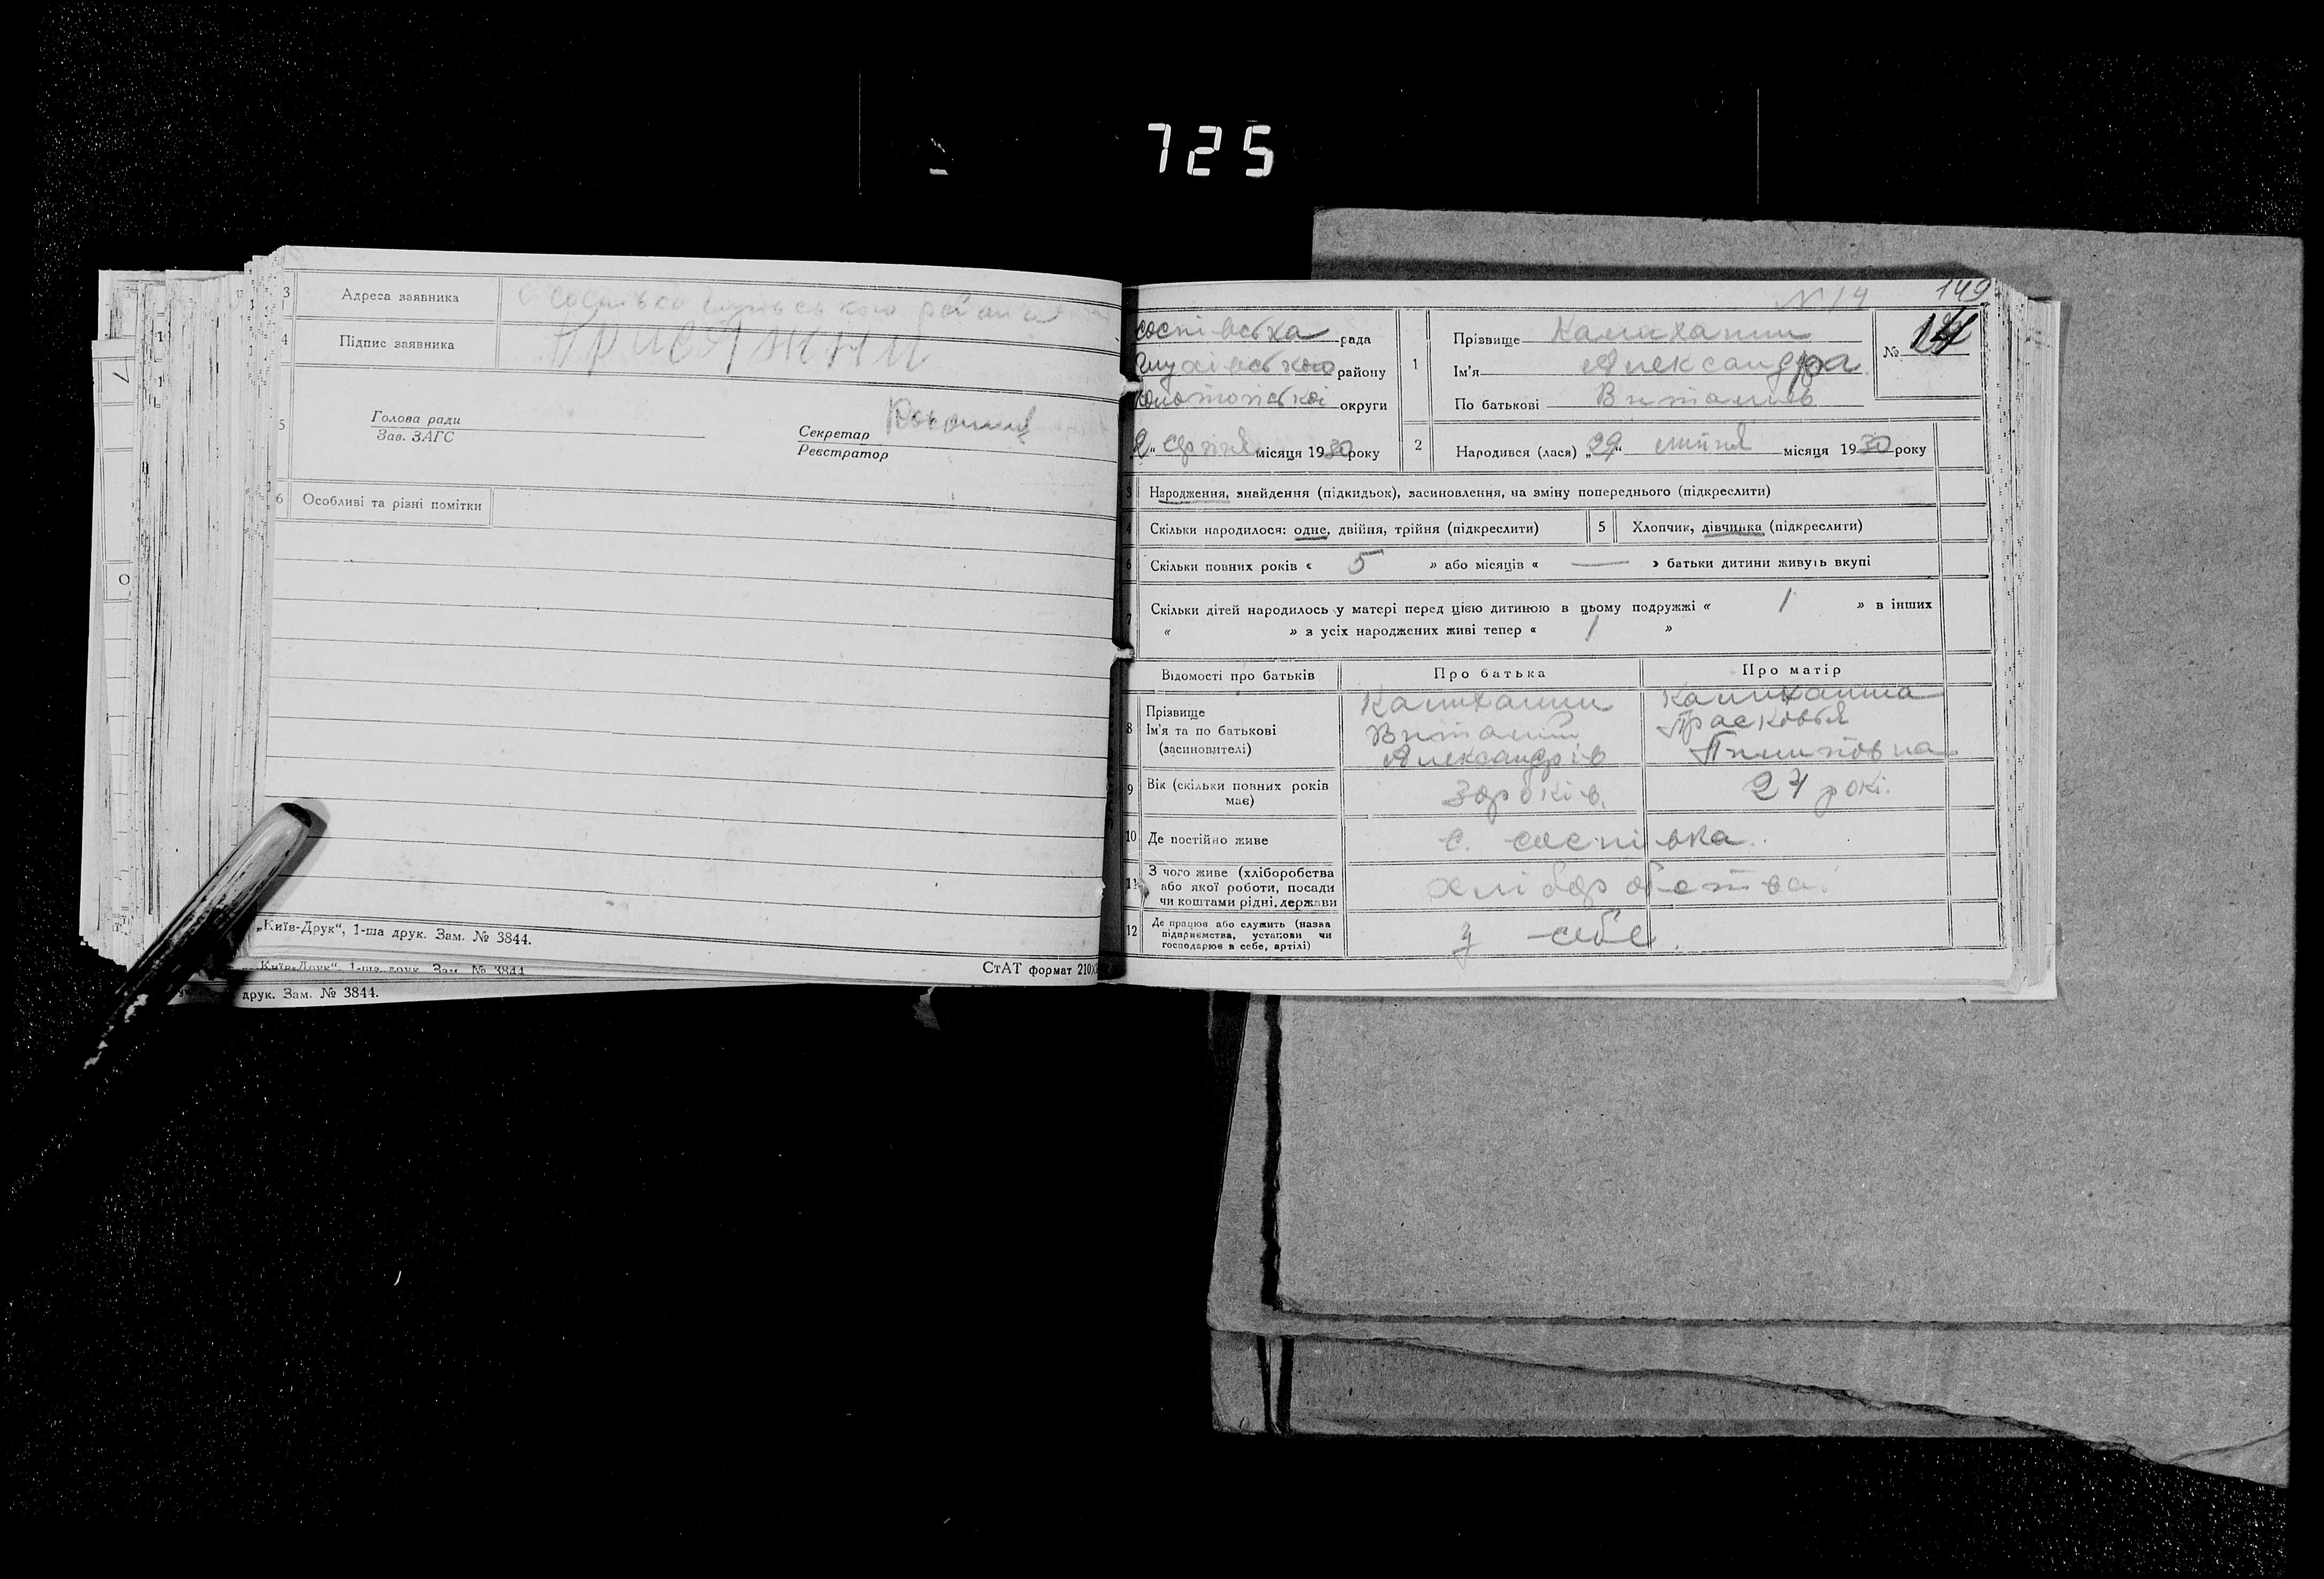 725
3 Адреса заявника
4 Підпис заявника
5 Голова ради
Зав. ЗАГС
Секретар
Реєстратор
6 Особливі та різні помітки
„Київ-Друк“, 1-ша друк. Зам. № 3844.
СтАТ формат 210
„Київ-Друк“, 1-ша друк. Зам. № 3844
друк. Зам. № 3844.
N 14
149
рада
Глухівського району
Конотопської округи
2“ серпня місяця 1930 року
1 Прізвище
Ім'я Александра
По батькові Виталиев
№ 14
2 Народився (лася) „29“ липня місяця 1930 року
3 Народження, знайдення (підкидьок), засиновлення, на зміну попереднього (підкреслити)
4 Скільки народилося: одне, двійня, трійня (підкреслити)
5 Хлопчик, дівчинка (підкреслити)
6 Скільки повних років « 5 » або місяців « — » батьки дитини живуть вкупі
7 Скільки дітей народилось у матері перед цією дитиною в цьому подружжі « 1 » в інших
« » з усіх народжених живі тепер « 1 »
Відомості про батьків
Про батька
Про матір
8 Прізвище
Ім'я та по батькові
(засиновителі)
Виталий
Александрів
Прасковья
9 Вік (скільки повних років
має)
років.
27 рокі.
10 Де постійно живе
с.
11 З чого живе (хліборобства
або якої роботи, посади
чи коштами рідні, держави
хліборобства
12 Де працює або служить (назва
підприємства, установи чи
господарює в себе, артілі)
у себе.